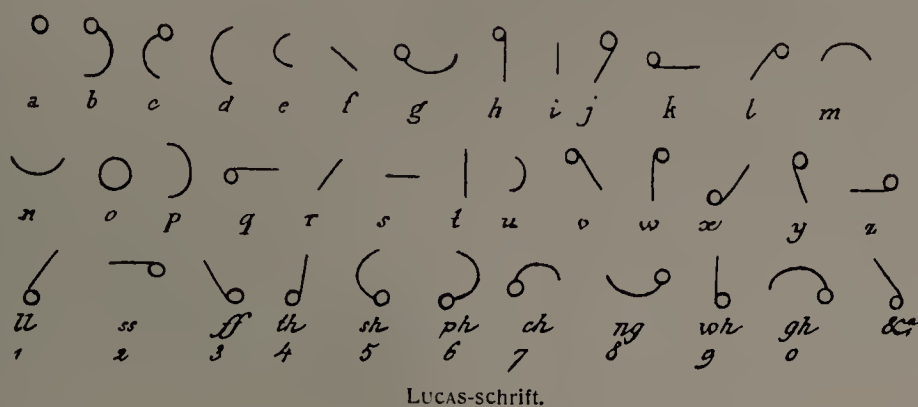 a b c d e f g h i j k l m
n o p q r s t u v w x y z
ll ss ff th sh ph ch ng wh gh &ca
1 2 3 4 5 6 7 8 9 0
LUCAS-schrift.